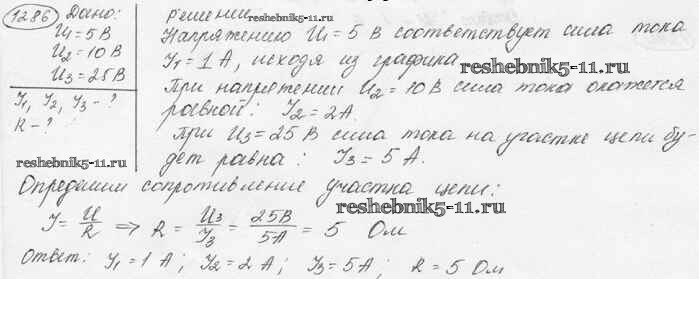 1286 Дано:
U₁ = 5 В
U₂ = 10 В
U₃ = 25 В
I₁, I₂, I₃ - ?
R - ?
reshebnik5-11.ru
Решение
reshebnik5-11.ru
Напряжению U₁ = 5 В соответствует сила тока
I₁ = 1 А, исходя из графика.
reshebnik5-11.ru
При напряжении U₂ = 10 В сила тока окажется
равной: I₂ = 2 А.
При U₃ = 25 В сила тока на участке цепи бу-
дет равна: I₃ = 5 А.
Определим сопротивление участка цепи:
reshebnik5-11.ru
I = U/R ⇒ R = U₃/I₃ = 25В/5А = 5 Ом
Ответ: I₁ = 1 А; I₂ = 2 А; I₃ = 5 А; R = 5 Ом